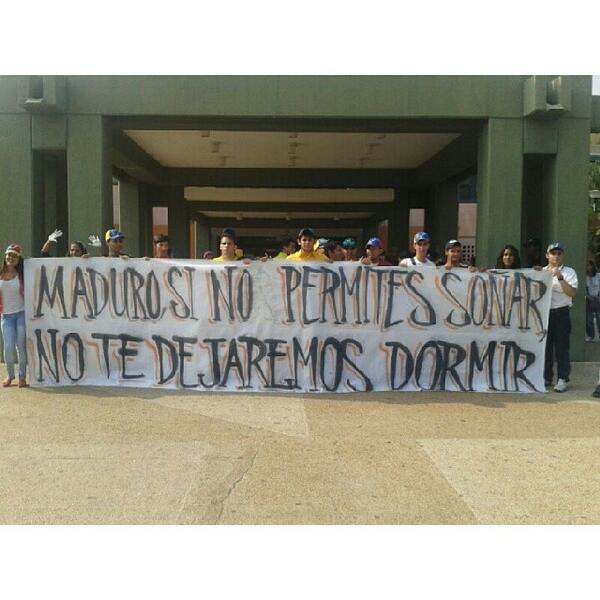 MADURO.SI NO PERMITES SOÑAR,
NO TE DEJAREMOS DORMIR